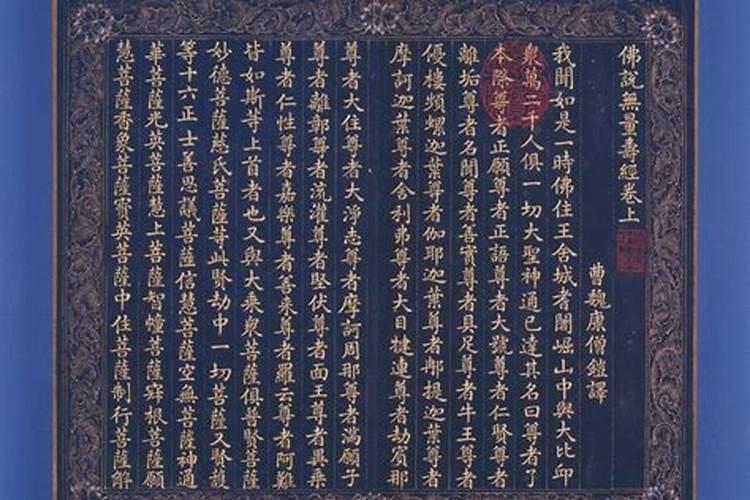 佛說無量壽經卷上
曹魏康僧鎧譯
我聞如是一時佛住王舍城耆闍崛山中與大比丘
衆萬二千人俱一切大聖神通已達其名曰尊者了
本際尊者正願尊者正語尊者大號尊者仁賢尊者
離垢尊者名聞尊者善實尊者具足尊者牛王尊者
優樓頻螺迦葉尊者伽耶迦葉尊者那提迦葉尊者
摩訶迦葉尊者舍利弗尊者大目犍連尊者劫賓那
尊者大住尊者大淨志尊者摩訶周那尊者滿願子
尊者離鄣尊者流灌尊者堅伏尊者面王尊者異乘
尊者仁性尊者嘉樂尊者善來尊者羅云尊者阿難
皆如斯等上首者也又與大乘衆菩薩俱普賢菩薩
妙德菩薩慈氏菩薩等此賢劫中一切菩薩又賢護
等十六正士善思議菩薩信慧菩薩空無菩薩神通
華菩薩光英菩薩慧上菩薩智幢菩薩寂根菩薩願
慧菩薩香象菩薩寶英菩薩中住菩薩制行菩薩解